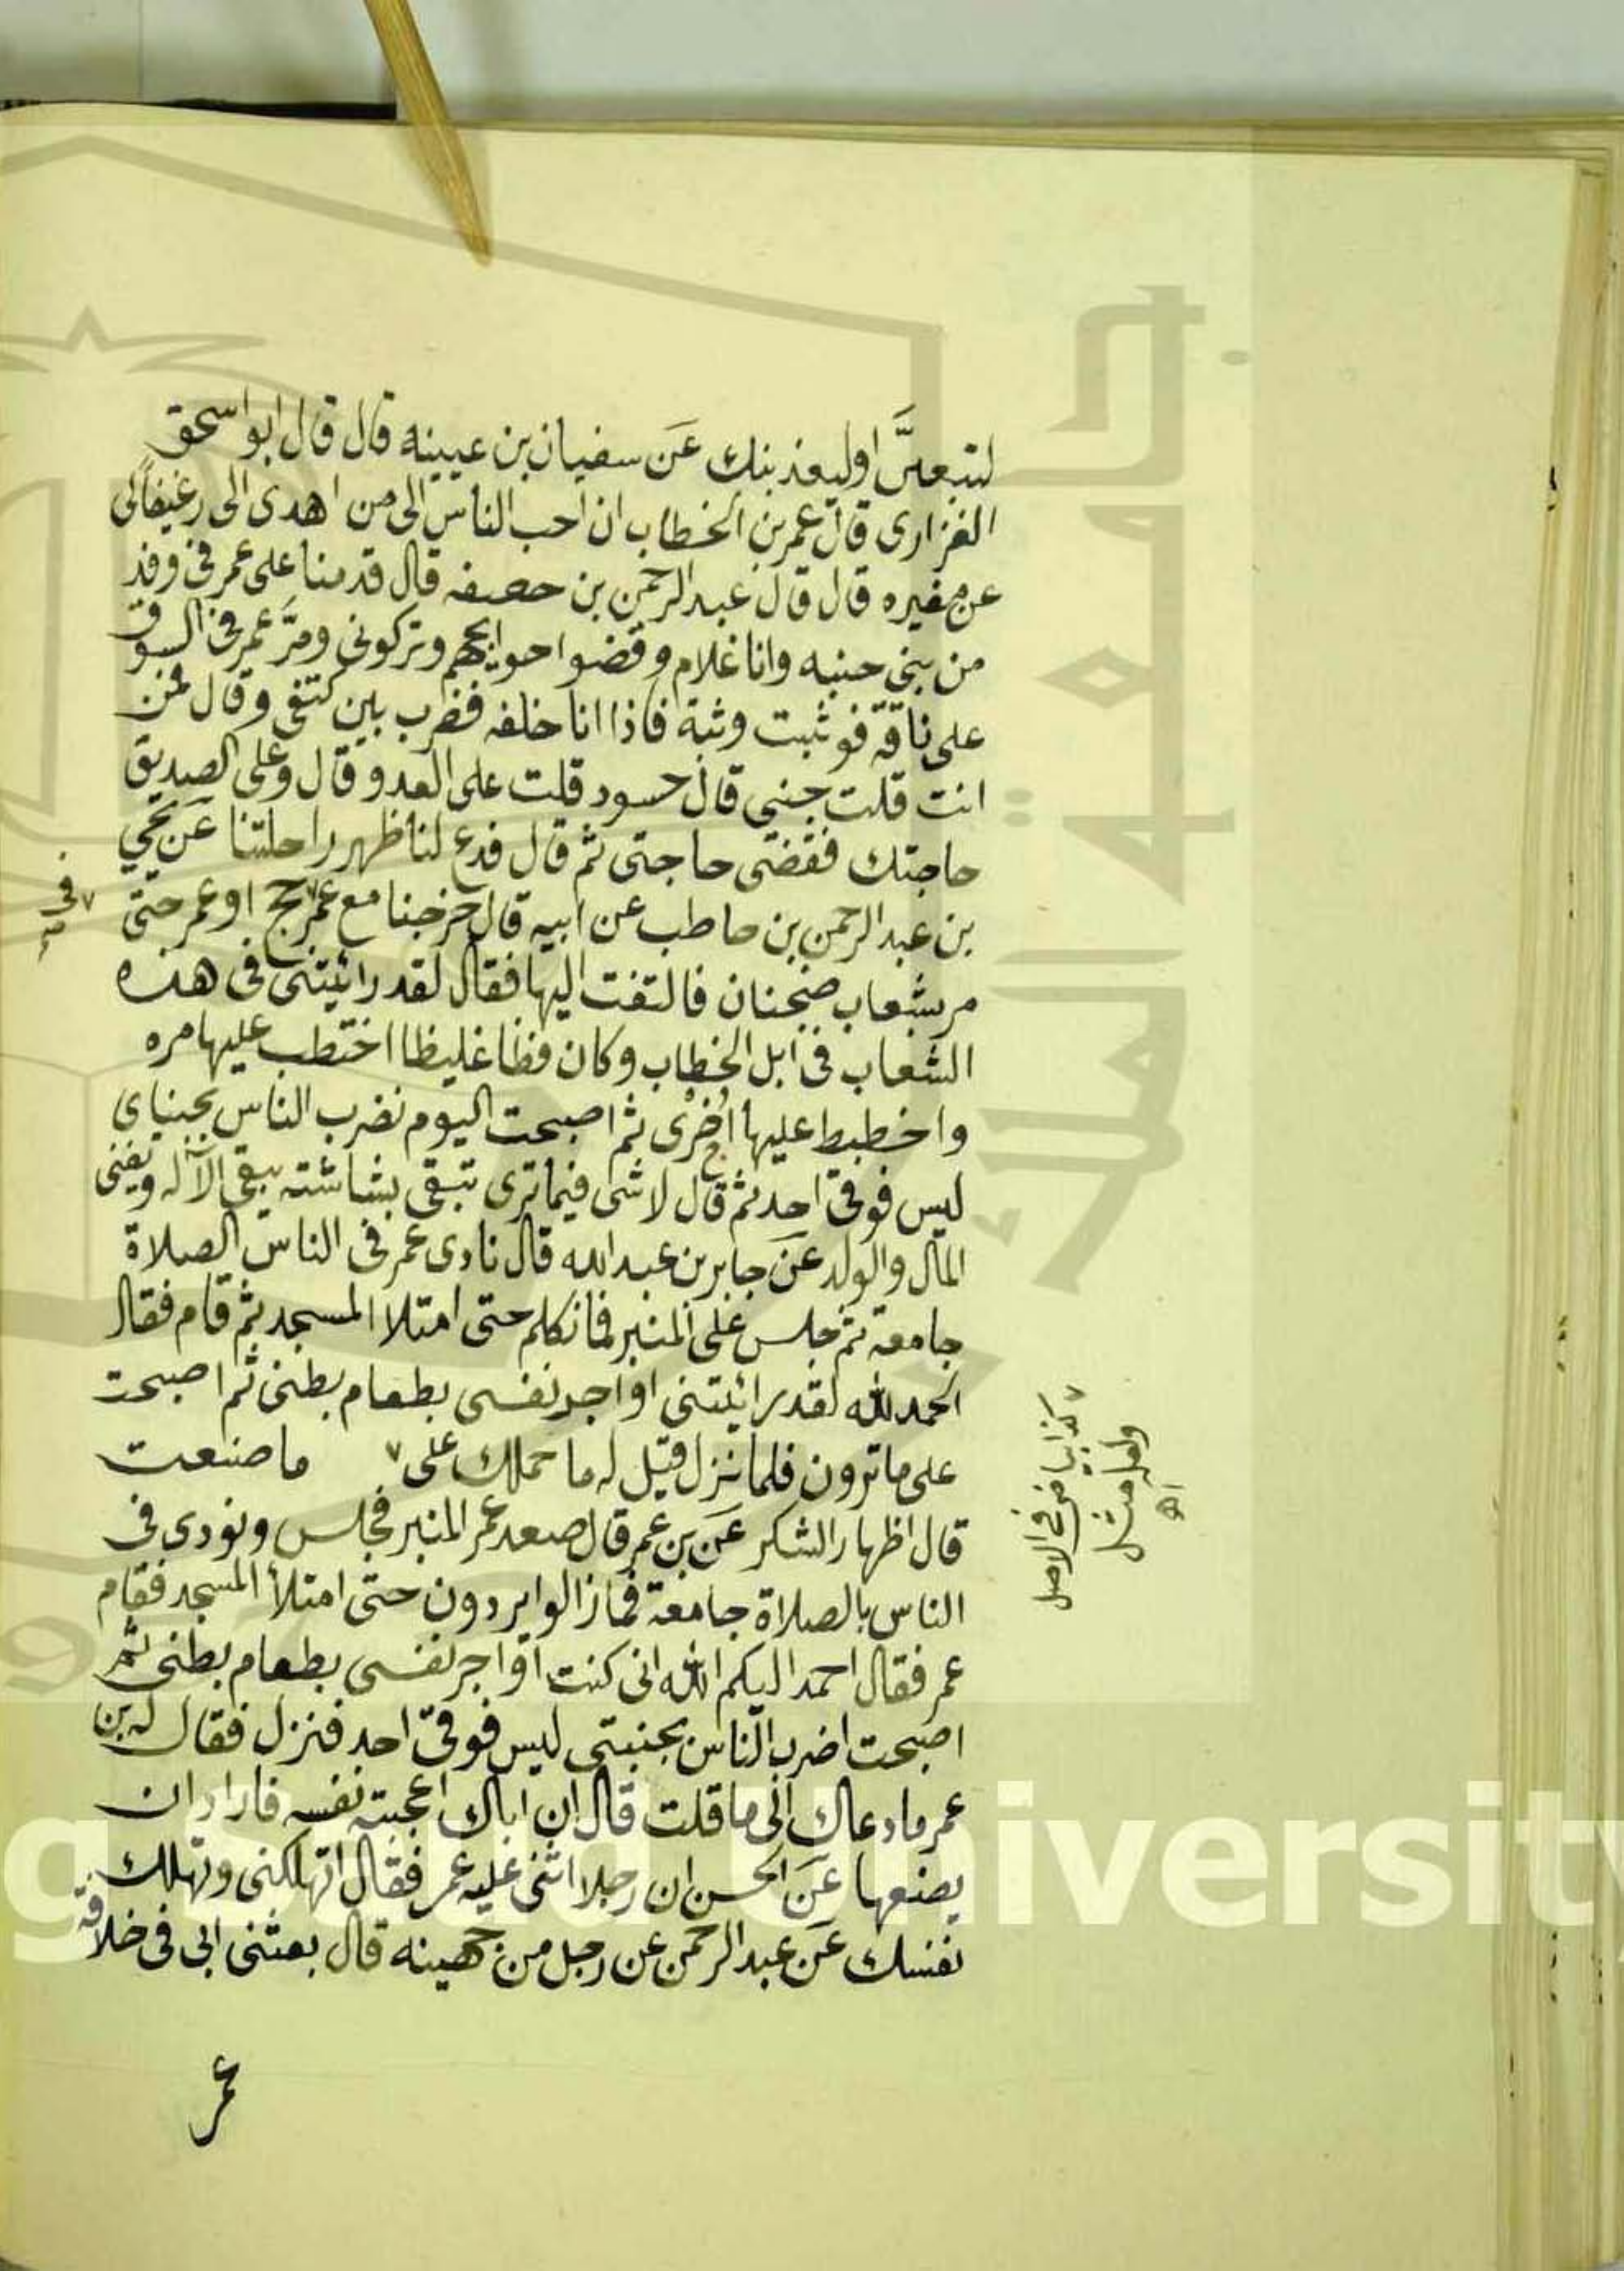 لتبعلنَّ اوليعذبنك عَن سفيان بن عيينه قال قال ابو اسحق
الفزارى قال عمر بن الخطاب ان احب الناس الى من اهدى الى رغيفا لى
عن مغيره قال قال عبد الرحمن بن حصفه قال قدمنا على عمر فى وفد
من بنى حنبه وانا غلام وقضوا حوايجهم وتركونى ومرَّ عمر فى السوق
على ناقة فوثبت وثبة فاذا انا خلفه فضرب بين كتفى وقال فمن
انت قلت جنبى قال حسود قلت على العدو قال وعلى الصديق
حاجتك فقضى حاجتى ثم قال فدع لنا ظهر راحلتنا عَن يحي
بن عبد الرحمن بن حاطب عن ابيه قال خرجنا مع عمر ٧ حج او عمر حتى
٧ فى
مر بشعاب ضجنان فالتفت اليها فقال لقد رائيتنى فى هذه
الشعاب فى ابل الخطاب وكان فظا غليظا اختطب عليها مره
واخطبط عليها اخرى ثم اصبحت اليوم نضرب الناس بجنباى
ليس فوقى احد ثم قال لا شى فيما ترى تبقى بشاشته يبقى الآله ويفنى
المال والولد عَن جابر بن عبد الله قال نادى عمر فى الناس الصلاة
جامعة ثم جلس على المنبر فما تكلم حتى امتلا المسجد ثم قام فقال
الحمد لله لقد رائيتنى اواجر نفسى بطعام بطنى ثم اصبحت
على ما ترون فلما نزل قيل له ما حملك على ٧ ما صنعت
٧ كذا بياض فى الاصل
ولعله مثل
اهـ
قال اظهار الشكر عَن بن عمر قال صعد عمر المنبر فجلس ونودى فى
الناس بالصلاة جامعة فما زالوا يردون حتى امتلأ المسجد فقام
عمر فقال احمد اليكم الله انى كنت اواجر نفسى بطعام بطنى ثم
اصبحت اضرب الناس بجنبتى ليس فوقى احد فنزل فقال له بن
عمر ما دعاك الى ما قلت قال ان اباك اعجبته نفسه فاراد ان
يصنعها عَن الحسن ان رجلا اثنى عليه عمر فقال اتهلكنى وتهلك
نفسك عَن عبد الرحمن عن رجل من جهينه قال بعثنى ابى فى خلافة
عمر